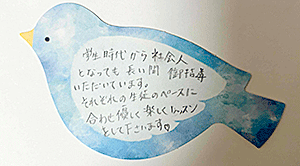 学生時代から社会人
となっても長い間 御指導
いただいています。
それぞれの生徒のペースに
合わせ優しく楽しくレッスン
をして下さいます♡